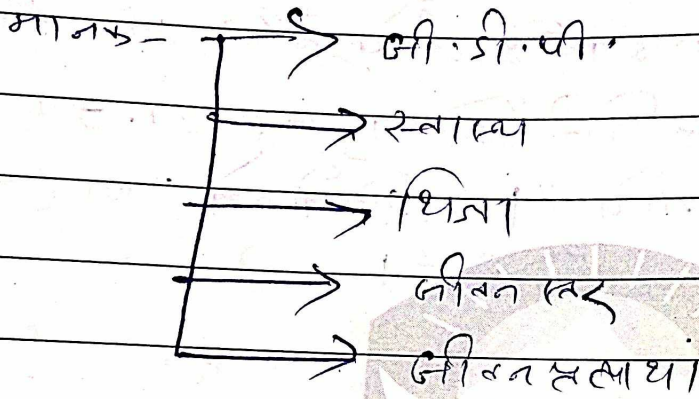 मानक - जी.डी.पी.
स्वास्थ्य
शिक्षा
जीवन स्तर
जीवन प्रत्याशा